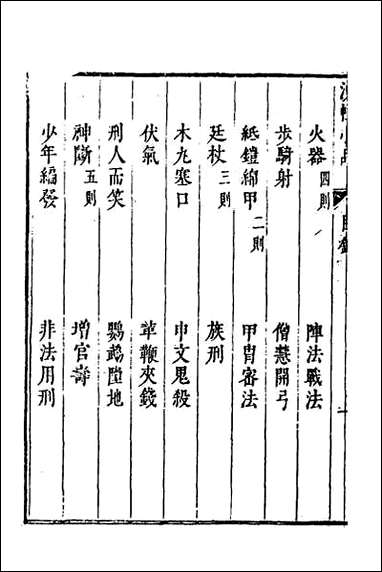 火器四則　陣法戰法
步騎射　僧慧開弓
紙鎧綿甲二則　甲冑審法
廷杖三則　族刑
木丸塞口　申文鬼殺
伏氣　革鞭夾錢
刑人而笑　鸚鵡墮地
神斷五則　增官壽
少年編發　非法用刑